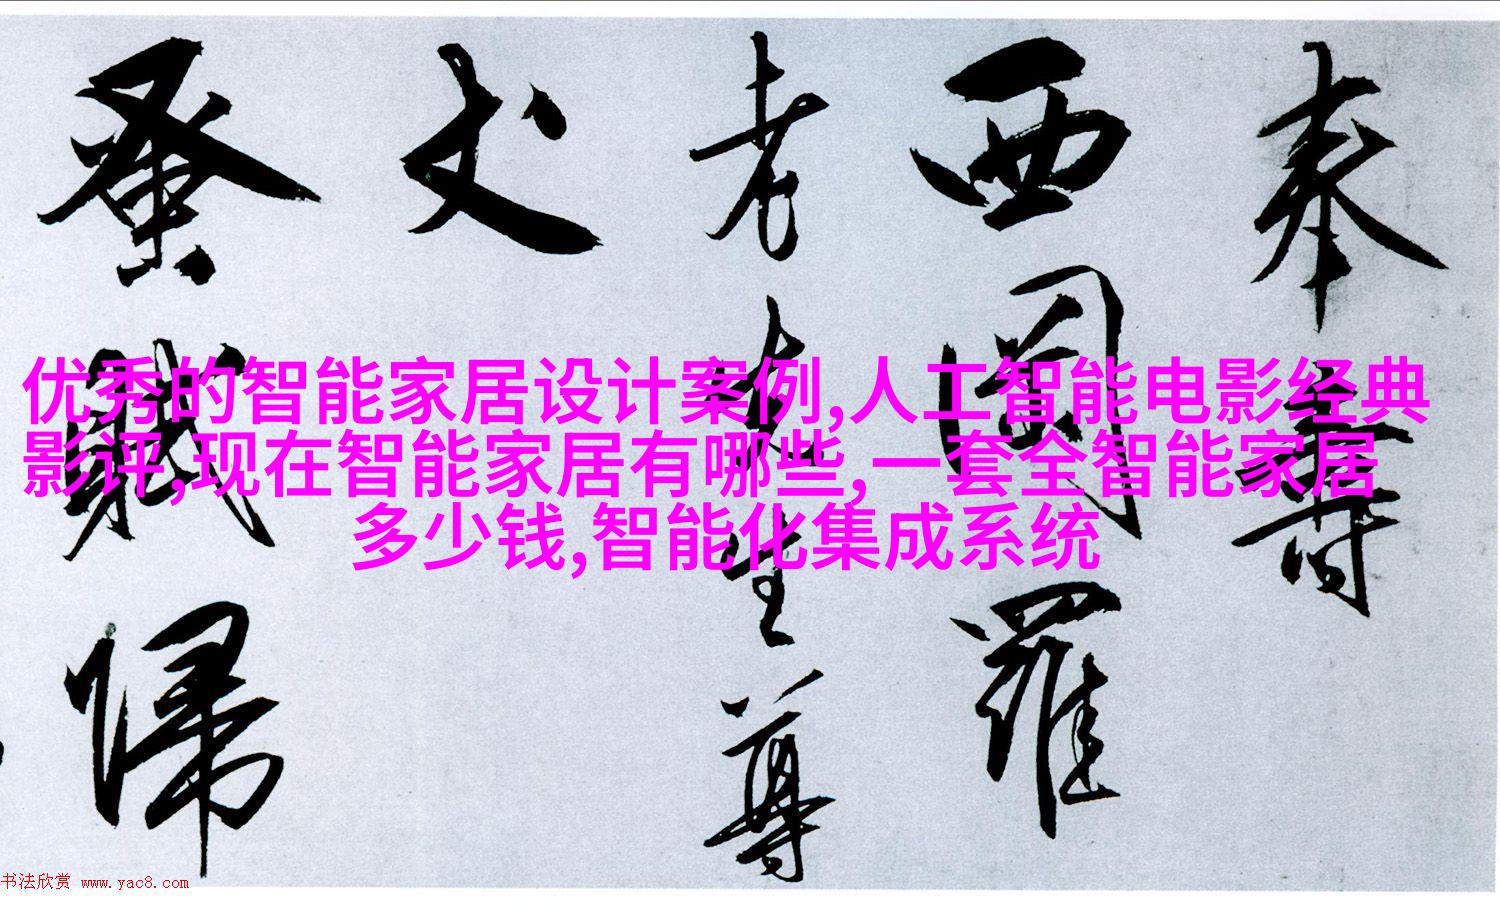 奉壽
西羅
老先生尊
丈
蚤賦歸
优秀的智能家居设计案例,人工智能电影经典
影评,现在智能家居有哪些, 一套全智能家居
多少钱,智能化集成系统
书法欣赏 www.yac8.com